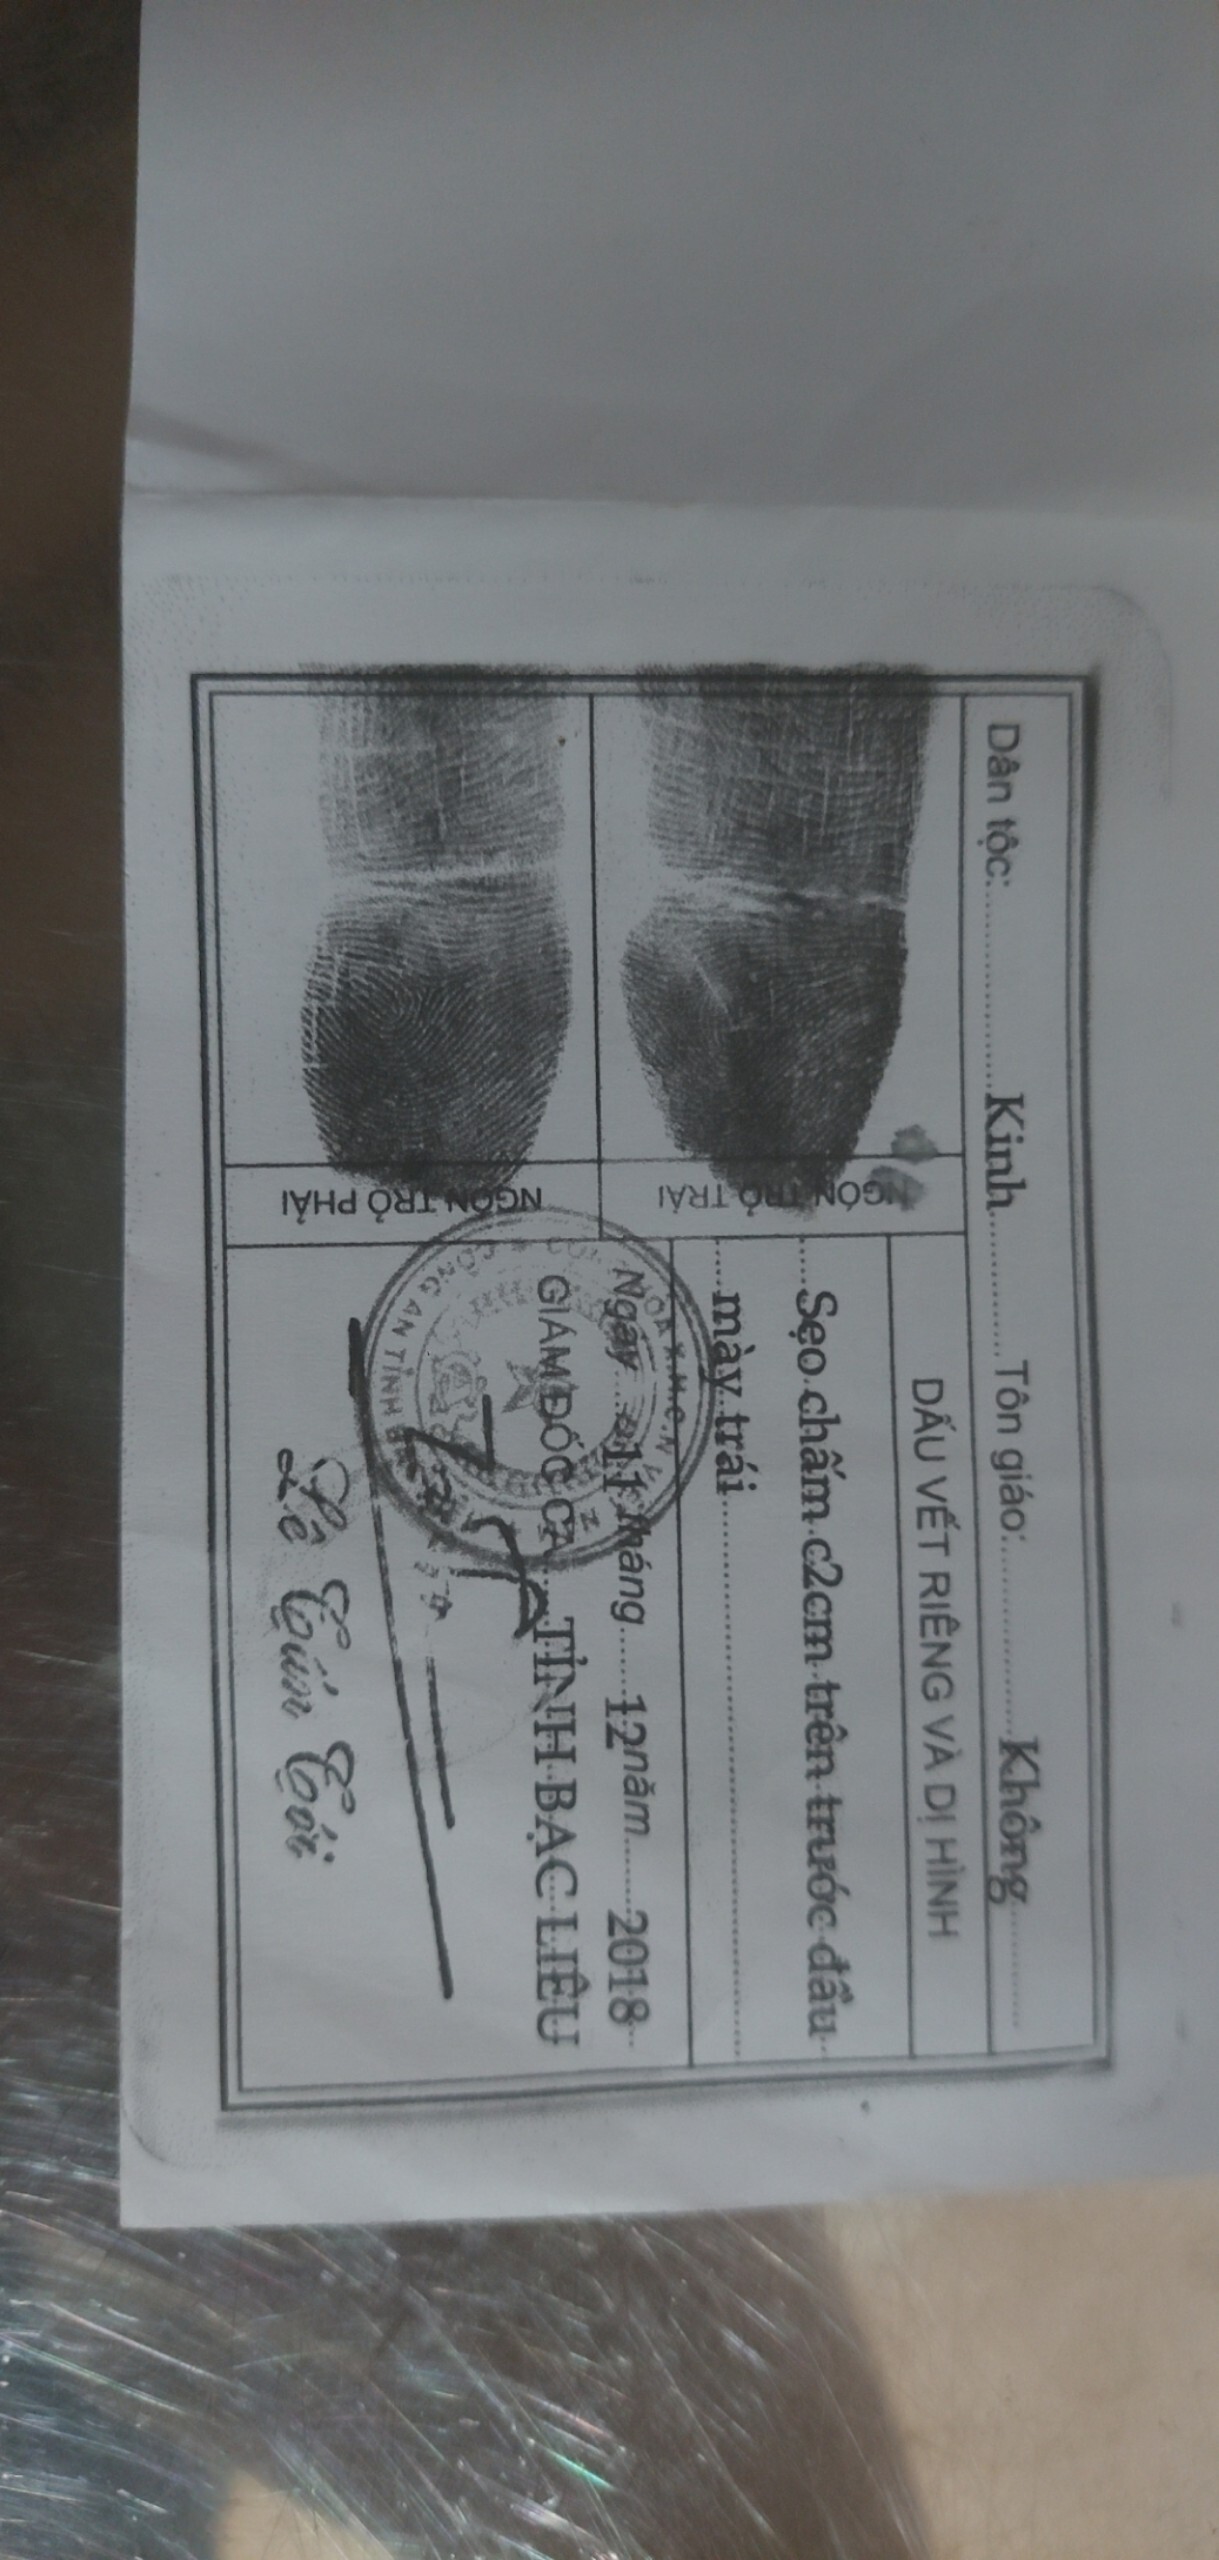 Dân tộc: Kinh Tôn giáo: Không
DẤU VẾT RIÊNG VÀ DỊ HÌNH
Sẹo chấm c2cm trên trước đầu
mày trái
NGÓN TRỎ TRÁI
NGÓN TRỎ PHẢI
Ngày 11 tháng 12 năm 2018
GIÁM ĐỐC CA TỈNH BẠC LIÊU
CÔNG AN TỈNH
Lê Tấn Tới